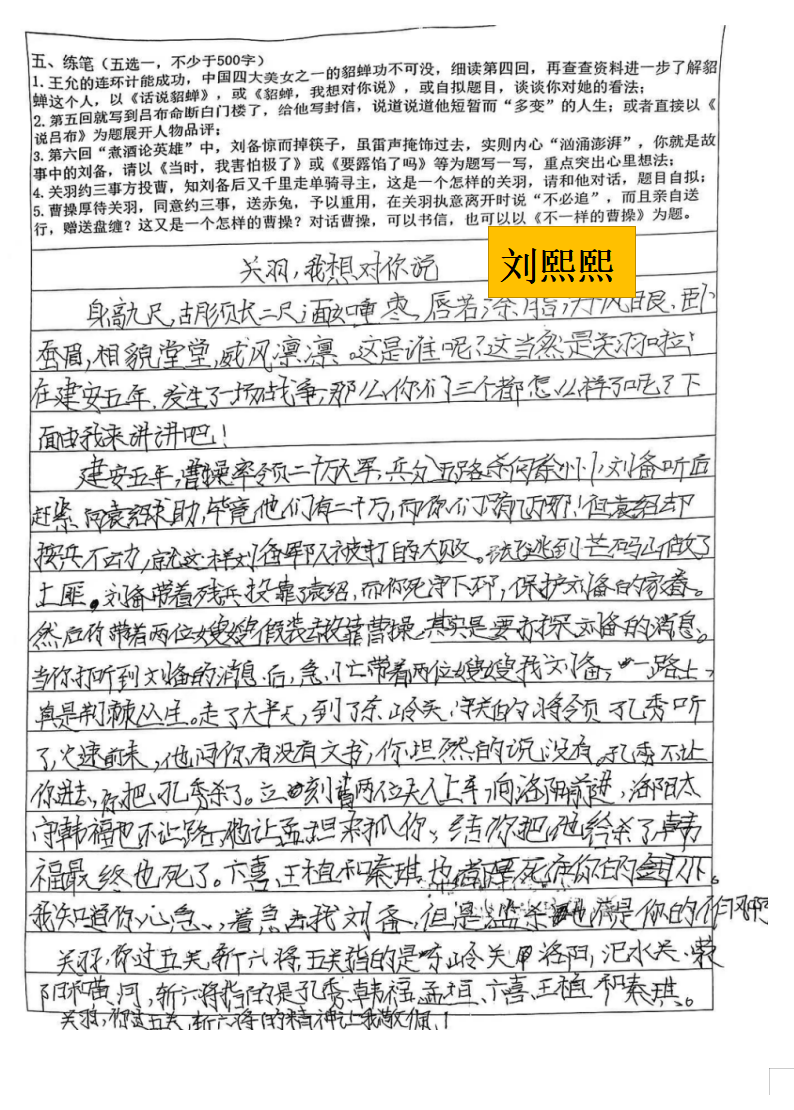 五、练笔（五选一，不少于500字）
1.王允的连环计能成功，中国四大美女之一的貂蝉功不可没，细读第四回，再查查资料进一步了解貂
蝉这个人，以《话说貂蝉》，或《貂蝉，我想对你说》，或自拟题目，谈谈你对她的看法；
2.第五回就写到吕布命断白门楼了，给他写封信，说道说道他短暂而“多变”的人生；或者直接以《
说吕布》为题展开人物品评；
3.第六回“煮酒论英雄”中，刘备惊而掉筷子，虽雷声掩饰过去，实则内心“汹涌澎湃”，你就是故
事中的刘备，请以《当时，我害怕极了》或《要露馅了吗》等为题写一写，重点突出心里想法；
4.关羽约三事方投曹，知刘备后又千里走单骑寻主，这是一个怎样的关羽，请和他对话，题目自拟；
5.曹操厚待关羽，同意约三事，送赤兔，予以重用，在关羽执意离开时说“不必追”，而且亲自送
行，赠送盘缠？这又是一个怎样的曹操？对话曹操，可以书信，也可以以《不一样的曹操》为题。
关羽，我想对你说
刘熙熙
身高九尺，胡须长二尺；面 枣，唇若涂脂，丹凤眼，卧
蚕眉，相貌堂堂，威风凛凛。这是谁呢？这当然是关羽啦！
在建安五年，发生了一场战争，那么你们三个都怎么样了呢？下
面由我来讲讲吧！
建安五年，曹操率领二十万大军，兵分五路杀向徐州，刘备听后
赶紧向袁绍求助，毕竟他们有二十万，而你们 ！但袁绍却
按兵不动，就这样刘备军队被打的大败。 逃到芒砀山做了
土匪。刘备带着残兵投靠袁绍，而你死守下邳，保护刘备的家眷。
然后你带着两位嫂嫂假装去投靠曹操，其实是要打探刘备的消息。
当你打听到刘备的消息后，急忙带着两位嫂嫂找刘备，一路上，
真是荆棘丛生。走了大半天，到了东岭关，守关的将领孔秀听
了，火速前来，他问你有没有文书，你坦然的说没有。孔秀不让
你进去，你把孔秀杀了。立刻 两位夫人上车，向洛阳前进，洛阳太
守韩福也不让路，他让孟坦来抓你，结 你把他给杀了，韩
福最终也死了。卞喜、王植和秦琪也都 死在你的 下。
我知道你心急，着急去找刘备，但是滥杀 是你的作风啊
关羽，你过五关，斩六将，五关指的是东岭关、洛阳，汜水关、荥
阳和黄河，斩六将指的是孔秀、韩福、孟坦、卞喜、王植和秦琪。
关羽，你过五关，斩六将的精神让我敬佩！